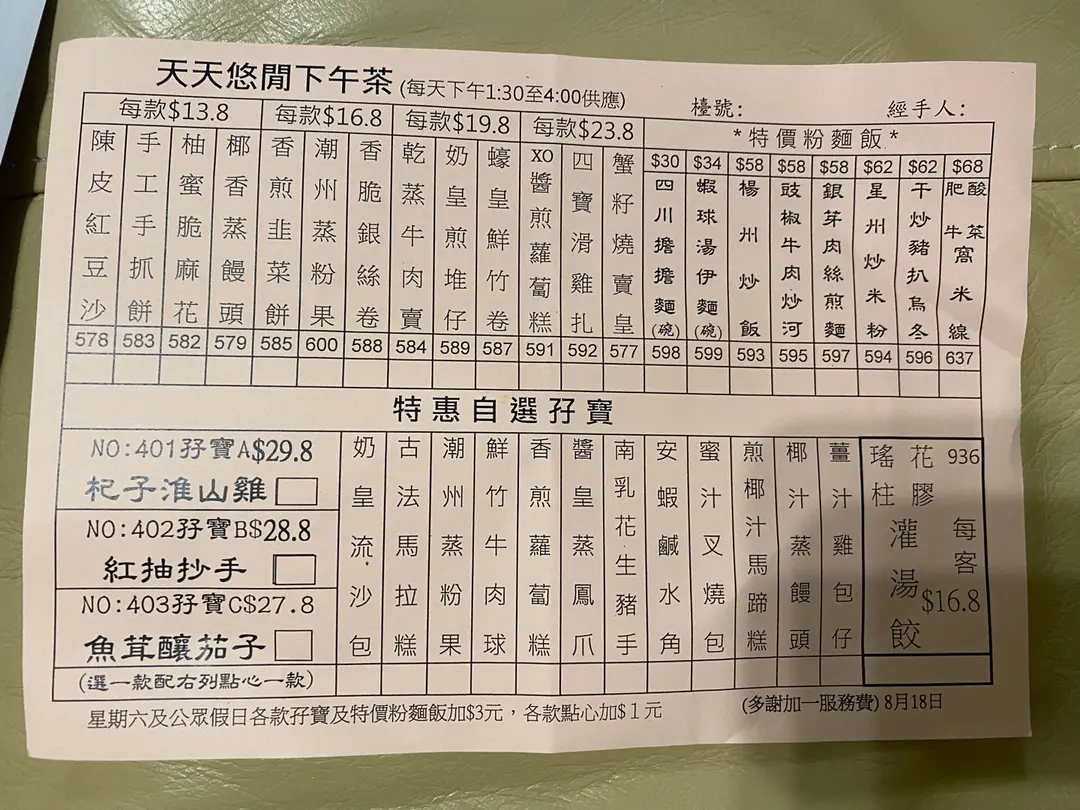 天天悠閒下午茶(每天下午1:30至4:00供應)
檯號:
經手人:
每款$13.8
每款$16.8
每款$19.8
每款$23.8
*特價粉麵飯*
陳皮紅豆沙
578
手工手抓餅
583
柚蜜脆麻花
582
椰香蒸饅頭
579
香煎韭菜餅
585
潮州蒸粉果
600
香脆銀絲卷
588
乾蒸牛肉賣
584
奶皇煎堆仔
589
蠔皇鮮竹卷
587
XO醬煎蘿蔔糕
591
四寶滑雞扎
592
蟹籽燒賣皇
577
$30
四川擔擔麵(碗)
598
$34
蝦球湯伊麵(碗)
599
$58
楊州炒飯
593
$58
豉椒牛肉炒河
595
$58
銀芽肉絲煎麵
597
$62
星州炒米粉
594
$62
干炒豬扒烏冬
596
$68
酸菜
肥牛窩米線
637
特惠自選孖寶
NO:401孖寶A$29.8
杞子淮山雞
NO:402孖寶B$28.8
紅抽抄手
NO:403孖寶C$27.8
魚茸釀茄子
(選一款配右列點心一款)
奶皇流沙包
古法馬拉糕
潮州蒸粉果
鮮竹牛肉球
香煎蘿蔔糕
醬皇蒸鳳爪
南乳花生豬手
安蝦鹹水角
蜜汁叉燒包
煎椰汁馬蹄糕
椰汁蒸饅頭
薑汁雞包仔
瑤柱
花膠
灌湯餃
936
每客
$16.8
星期六及公眾假日各款孖寶及特價粉麵飯加$3元，各款點心加$1元
(多謝加一服務費)8月18日